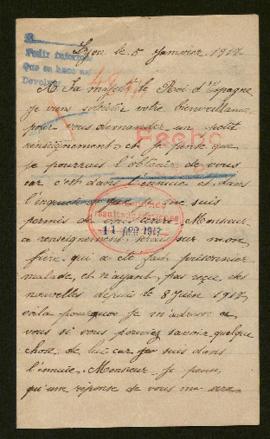 Pedir informe
Que se hace en
Devolver
Lyon le 5 Janvier 1918
A Sa majesté le Roi d'Espagne
Je viens solliciter votre bienveillance
pour vous demander un petit
renseignement, et je pense que
je pourrais l'obtenir de vous
car c'est dans l'ennuie et dans
l'inquiétude que je me suis
permis de
Monsieur
ce renseignement serait sur mon
frère qui a été fait prisonnier
malade, et n'ayant pas reçu des
nouvelles depuis le 8 Juin 1917
voilà pourquoi je m'adresse a
vous si vous pouvez savoir quelque
chose de lui car je suis dans
l'ennuie. Monsieur je pense
qu'une réponse de vous me sera
Fecho